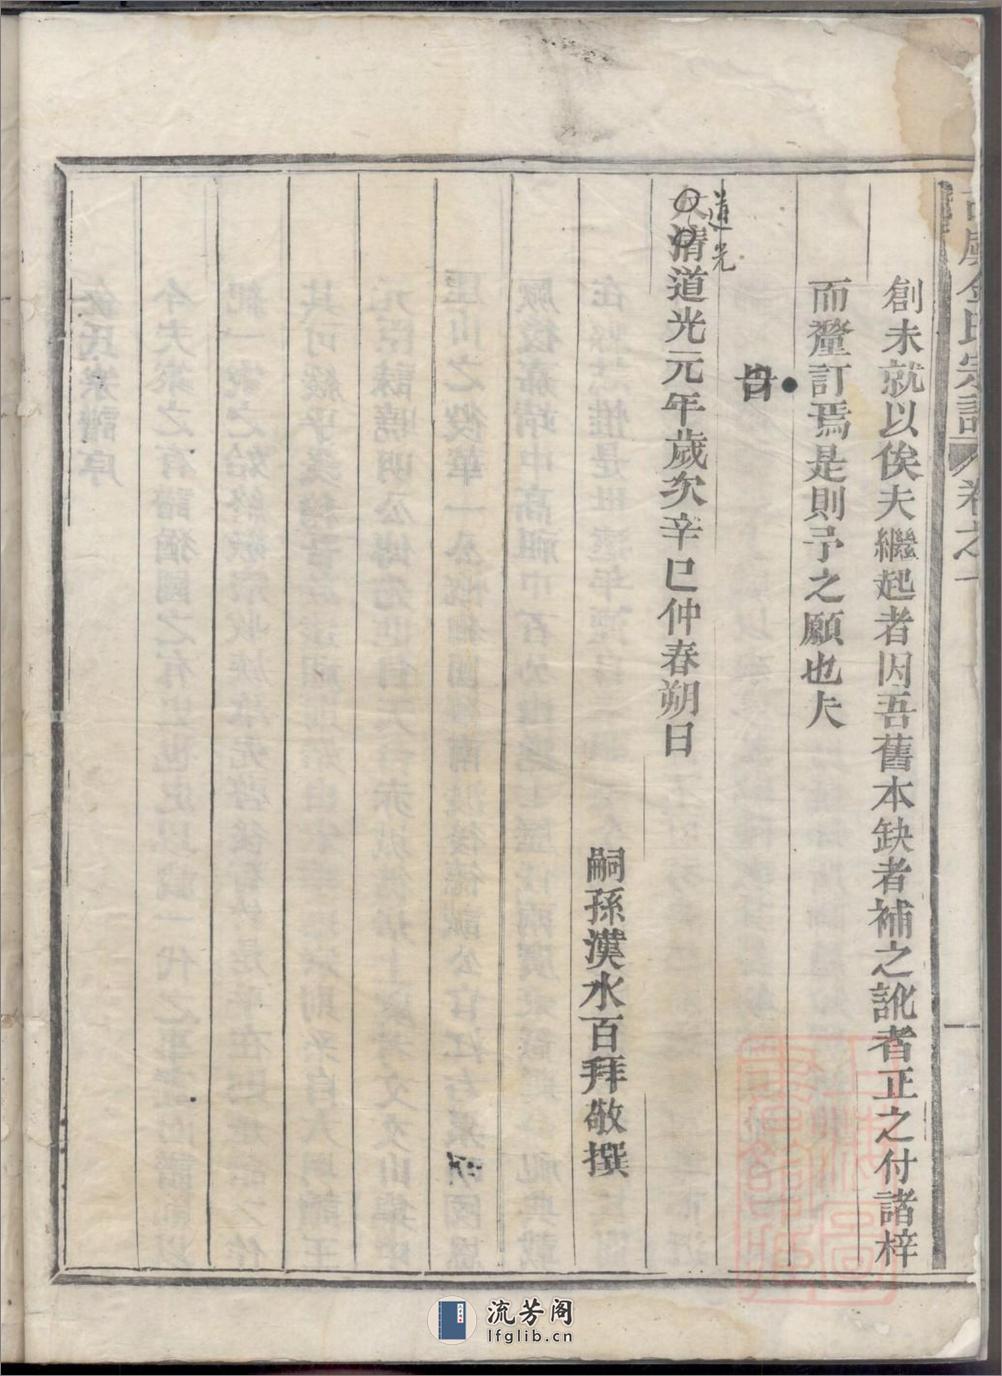 金氏宗譜 卷之一
創未就以俟夫繼起者因吾舊本缺者補之訛者正之付諸梓
而釐訂焉是則予之願也夫
旹
道光
大清道光元年歲次辛巳仲春朔日
嗣孫漢水百拜敬撰
流芳阁
lfglib.cn